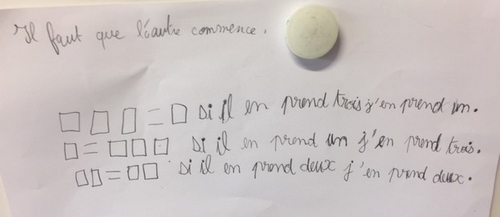 Il faut que l'autre commence.
□ □ □ = □ si il en prend trois j'en prend un.
□ = □ □ □ si il en prend un j'en prend trois.
□ □ = □ □ si il en prend deux j'en prend deux.